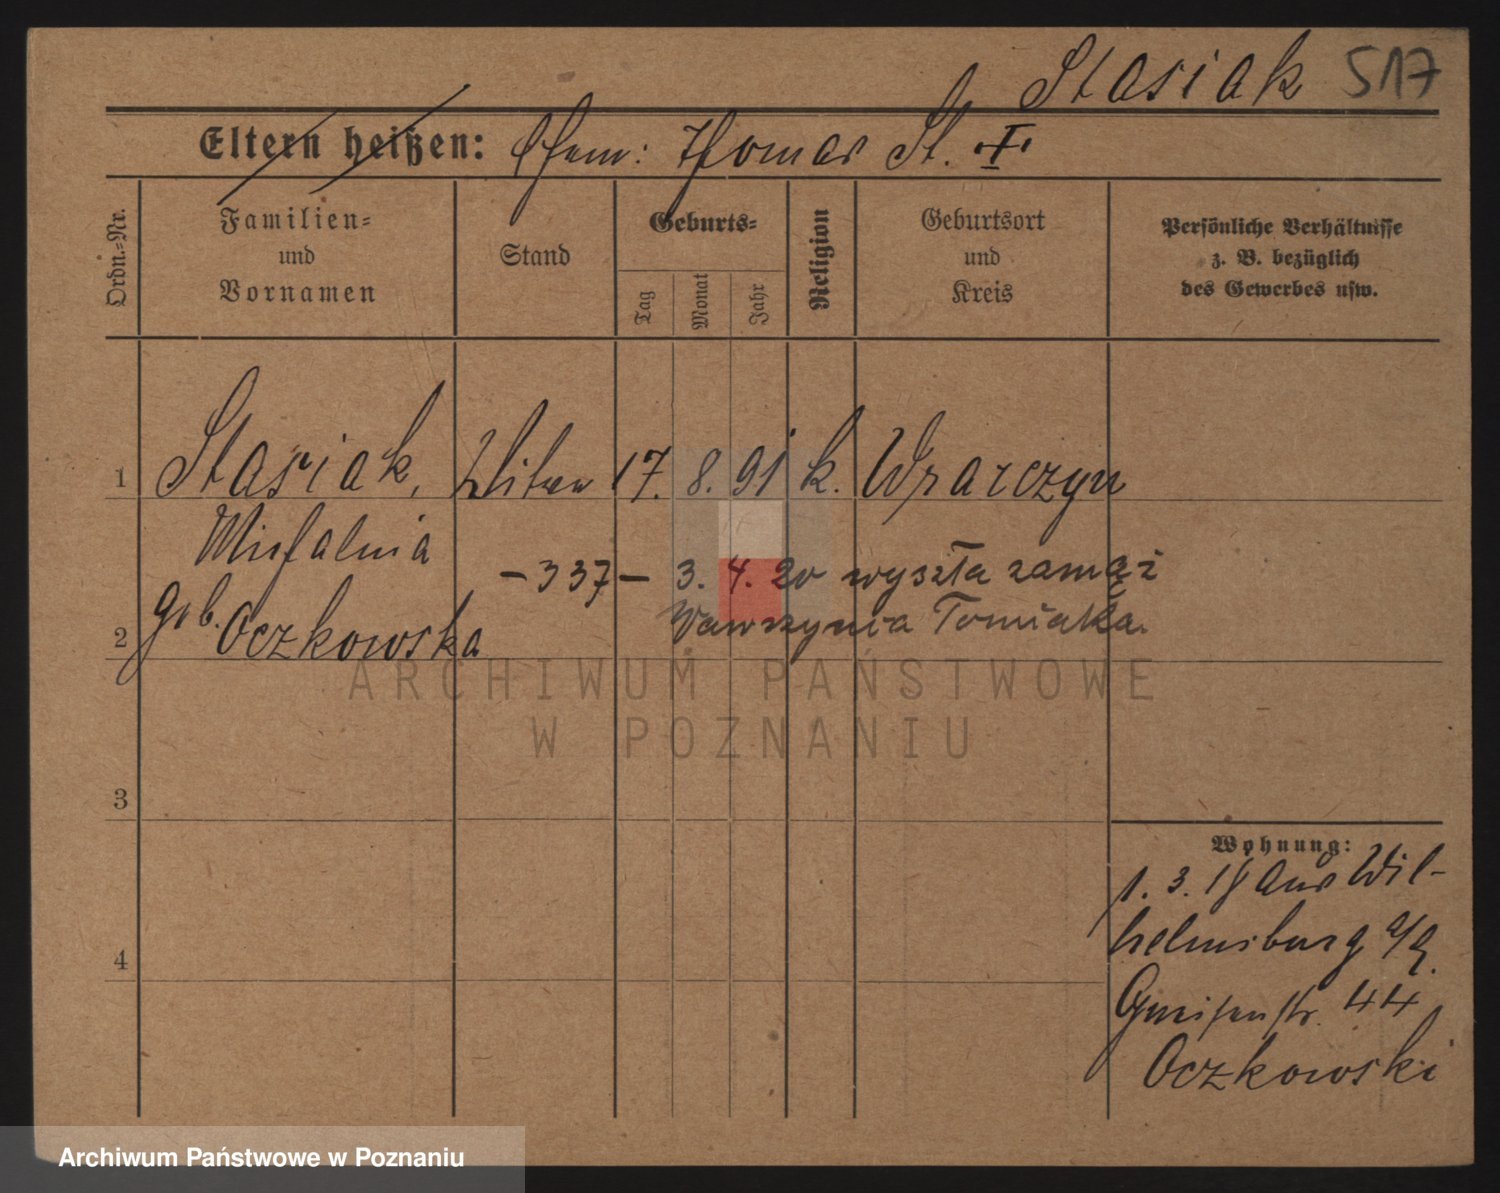 Stasiak 517
Eltern heißen: Ehem: Thomas St. †
Ordn.-Nr.
Familien-
und
Vornamen
Stand
Geburts-
Tag
Monat
Jahr
Religion
Geburtsort
und
Kreis
Persönliche Verhältnisse
z. B. bezüglich
des Gewerbes usw.
1 Stasiak, Witwe 17. 8. 91 k.
Michalina
- 337 - 3. 4. 20 wyszła zamąż
geb. Wawrzynia Tomiaka.
2 Oczkowska
ARCHIWUM PAŃSTWOWE
W POZNANIU
3
Wohnung:
1. 3. 18 aus Wil-
helmsburg a/E.
4
Gneisenstr. 44
Oczkowski
Archiwum Państwowe w Poznaniu